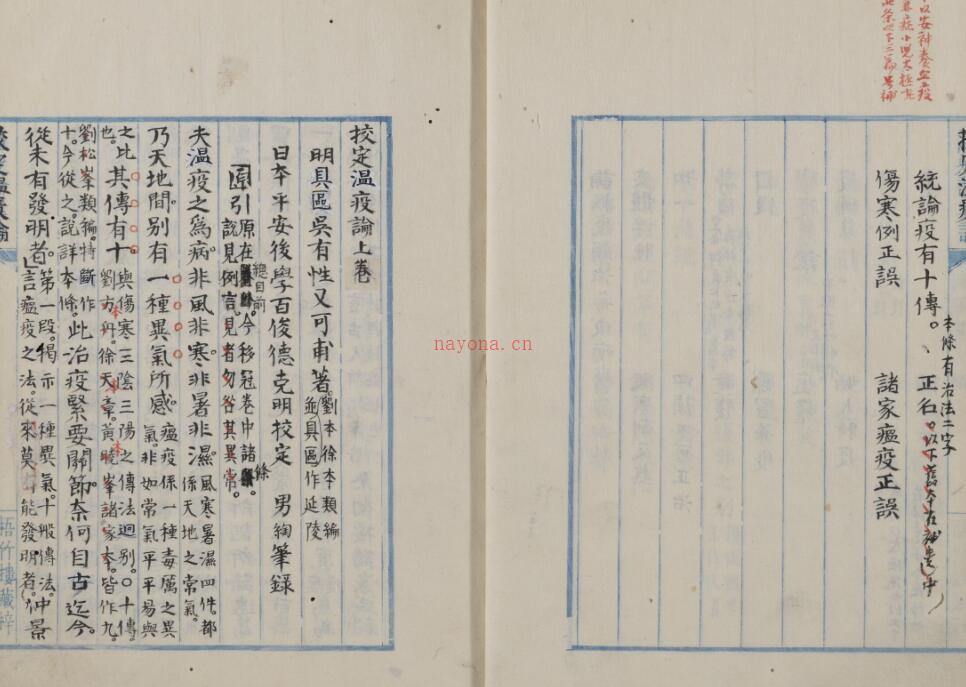 統論疫有十傳。、 正名。
本條有治法二字
傷寒例正誤 諸家瘟疫正誤
挍定溫疫論上卷
明具區吳有性又可甫著。劉本徐本類編並具區作延陵
日本平安後學百俊德克明挍定 男綯筆錄
原引 原在總目前今移冠卷中諸條
說見例言。見者勿咎其異常。
夫溫疫之為病。非風非寒。非暑非濕。風寒暑濕四件。都係天地之常氣。
乃天地間。別有一種異氣所感。瘟疫係一種毒厲之異氣。非如常氣平平易與
之比也。其傳有十。與傷寒三陰三陽之傳法迥別。〇十傳。劉方舟。徐天章。黃曉峯諸家本。皆作九。
劉松峯類編。特斷作十。今從之。說詳本條。此治疫緊要關節。奈何自古迄今。
從未有發明者。第一段。揭示一種異氣。十般傳法。仲景言瘟疫之法。從來莫能發明者。
梧竹樓藏梓
nayona.cn